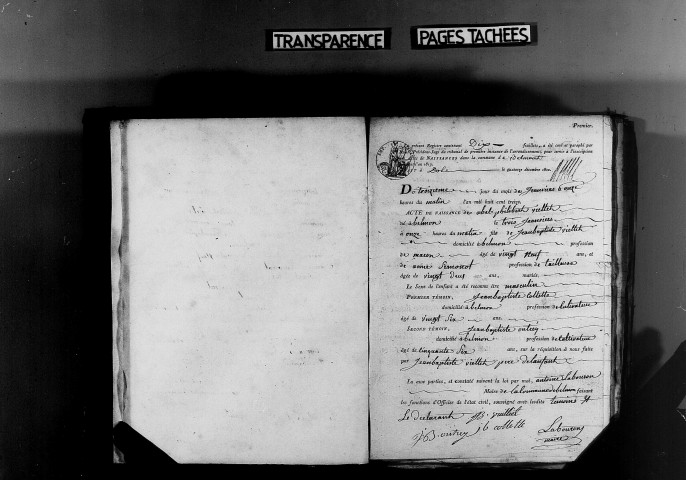 TRANSPARENCE
PAGES TACHÉES
Premier.
Le présent Registre contenant Dix feuillets, a été coté et paraphé par
Président-Juge du tribunal de première instance de l'arrondissement, pour servir à l'inscription
des Actes de NAISSANCES dans la commune d
le quatorze décembre 1812.
Du troizieme jour du mois de Janvier à onze
heures du matin l'an mil huit cent treize.
ACTE DE NAISSANCE de philibert viellet
né à belmon le trois janvier
à onze heures du matin fils de Jeanbaptiste viellet
domicilié à belmon profession
de macon âgé de vingt neuf ans, et
de anne profession de tailleuse
âgée de vingt deux ans, mariés.
Le sexe de l'enfant a été reconnu être masculin
PREMIER TÉMOIN, Jeanbaptiste Collette
domicilié à belmon profession de cultivateur
âgé de vingt six ans.
SECOND TÉMOIN, Jeanbaptiste outrey
domicilié à belmon profession de cultivateur
âgé de cinquante six ans, sur la réquisition à nous faite
par Jeanbaptiste viellet pere de lenfant
En onze parties, et constaté suivant la loi par moi, antoine Labouron
Maire de la commune de belmon faisant
les fonctions d'Officier de l'état civil, soussigné avec lesdits temoins
Le declarant JB. viellet
JB outrey jb collette
Labouron
maire